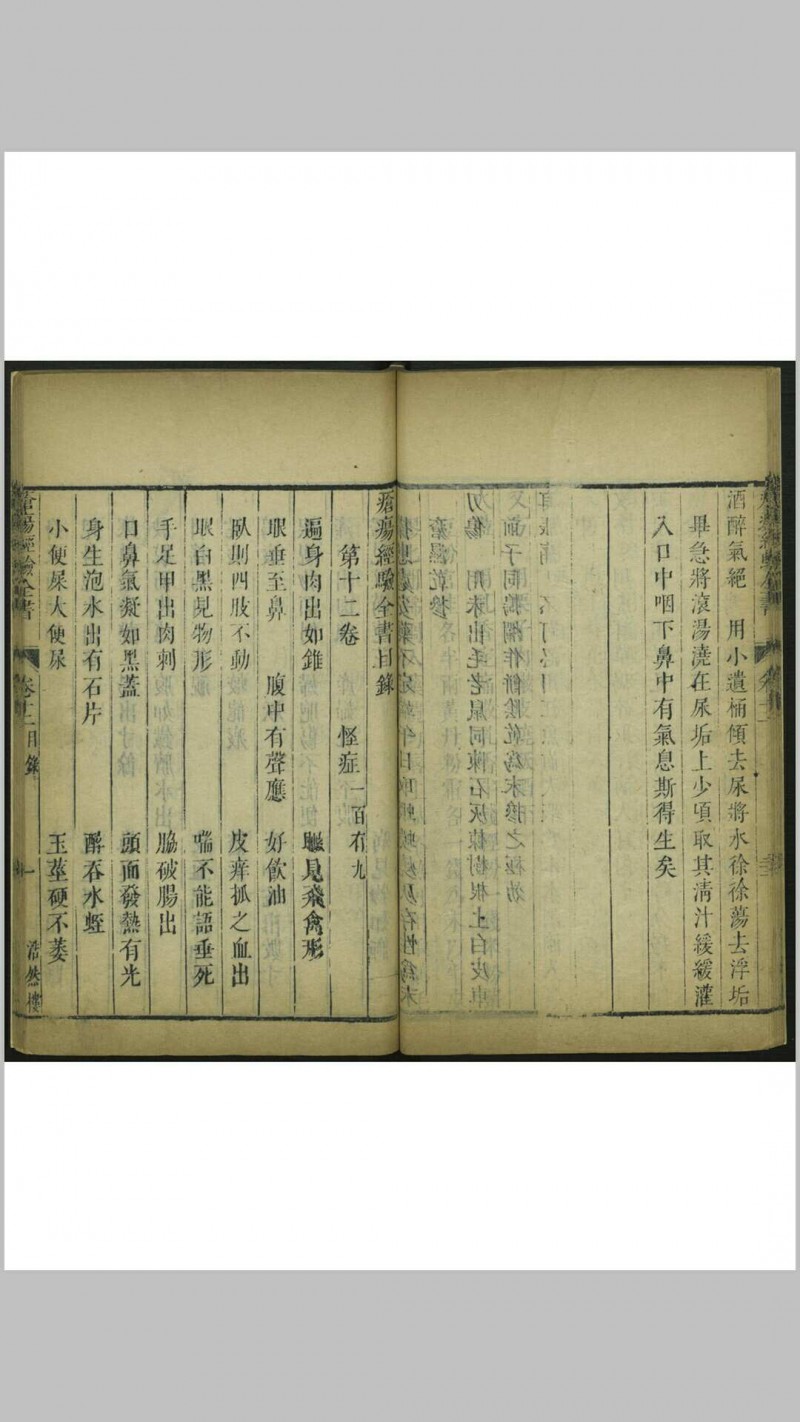 酒醉氣絕　用小遺桶傾去尿將水徐徐蕩去浮垢
畢急將滾湯澆在尿垢上少頃取其清汁緩緩灌
入口中咽下鼻中有氣息斯得生矣
瘡瘍經驗全書目錄
第十二卷　怪症一百有九
遍身肉出如錐　見飛禽形
眼垂至鼻　腹中有聲應　好飲油
臥則四肢不動　皮痒抓之血出
眼白黑見物形　喘不能語垂死
手足甲出肉刺　脇破腸出
口鼻氣凝如黑蓋　頭面發熱有光
身生泡水出有石片　醉吞水蛭
小便屎大便尿　玉莖硬不萎
瘡瘍經驗全書　卷十二目錄　一　浩然樓